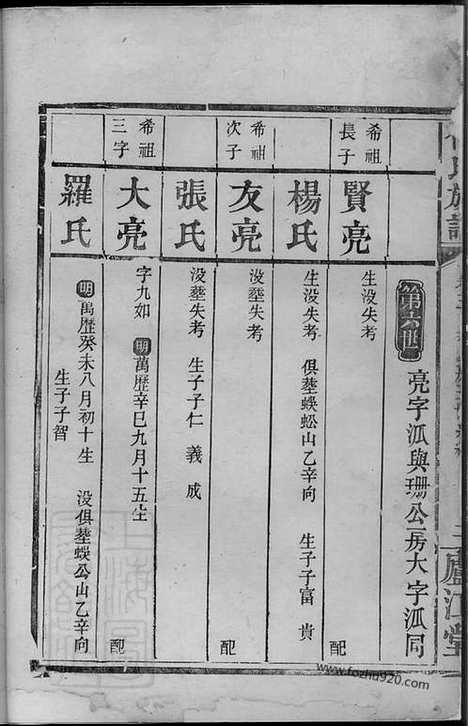 第六世
亮字派與珊公一房大字派同
希祖
長子
賢亮
生没失考
配
楊氏
生没失考 俱塟蜈蚣山乙辛向 生子子富 貴
希祖
次子
友亮
没塟失考
配
張氏
没塟失考 生子子仁 義 成
希祖
三字
大亮
字九如 明萬歷辛巳九月十五生
配
羅氏
明萬歷癸未八月初十生 没俱塟蜈公山乙辛向
生子子智
氏族譜
廬江堂
www.fozhu920.com